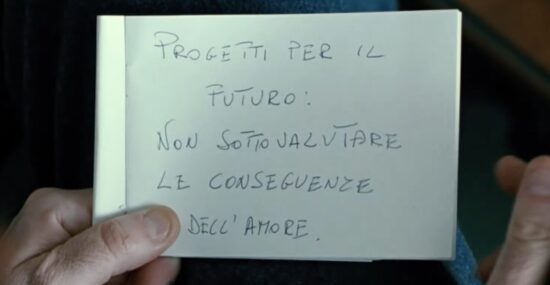 PROGETTI PER IL
FUTURO:
NON SOTTOVALUTARE
LE CONSEGUENZE
DELL'AMORE.